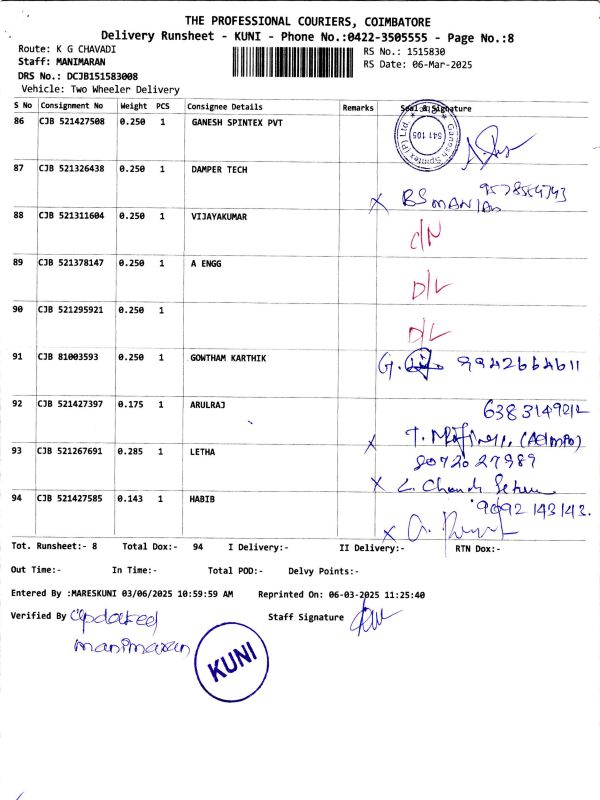 THE PROFESSIONAL COURIERS, COIMBATORE
Delivery Runsheet - KUNI - Phone No.:0422-3505555 - Page No.:8
Route: K G CHAVADI
RS No.: 1515830
Staff: MANIMARAN
RS Date: 06-Mar-2025
DRS No.: DCJB151583008
Vehicle: Two Wheeler Delivery
S No Consignment No Weight PCS Consignee Details Remarks Seal & Signature
86 CJB 521427508 0.250 1 GANESH SPINTEX PVT
Ganesh Spintex (P) Ltd. 641 105
87 CJB 521326438 0.250 1 DAMPER TECH
X BSMANIAN
88 CJB 521311604 0.250 1 VIJAYAKUMAR
C/N
89 CJB 521378147 0.250 1 A ENGG
D/L
90 CJB 521295921 0.250 1
D/L
91 CJB 81003593 0.250 1 GOWTHAM KARTHIK G. 9942664611
92 CJB 521427397 0.175 1 ARULRAJ
6383149212
X (Admin)
93 CJB 521267691 0.285 1 LETHA
9072027989
X
94 CJB 521427585 0.143 1 HABIB
9092 143143.
X
Tot. Runsheet:- 8 Total Dox:- 94 I Delivery:- II Delivery:- RTN Dox:-
Out Time:- In Time:- Total POD:- Delvy Points:-
Entered By :MARESKUNI 03/06/2025 10:59:59 AM Reprinted On: 06-03-2025 11:25:40
Verified By Updated Staff Signature
manimaran
KUNI